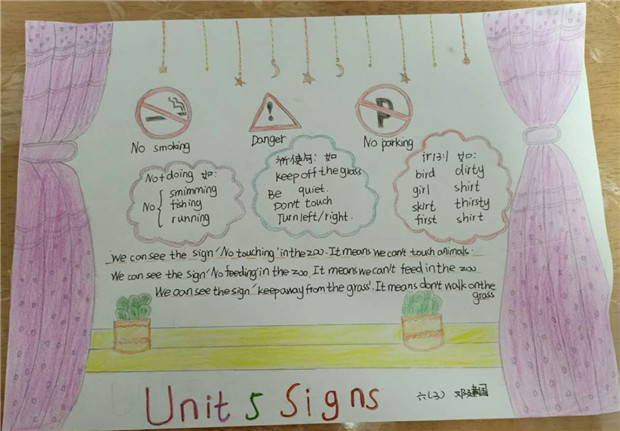 No smoking
Danger
No parking
P
No+doing 如:
No { smimming
fishing
running
祈使句: 如
keep off the grass
Be quiet.
Don't touch
Turn left/right.
ir[ɜ:] 如:
bird dirty
girl shirt
skirt thirsty
first shirt
We can see the sign 'No touching' in the zoo. It means we can't touch animals.
We can see the sign 'No feeding' in the zoo. It means we can't feed in the zoo
We can see the sign 'keep away from the grass'. It means don't walk on the
grass
Unit 5 Signs
六(3) 邓